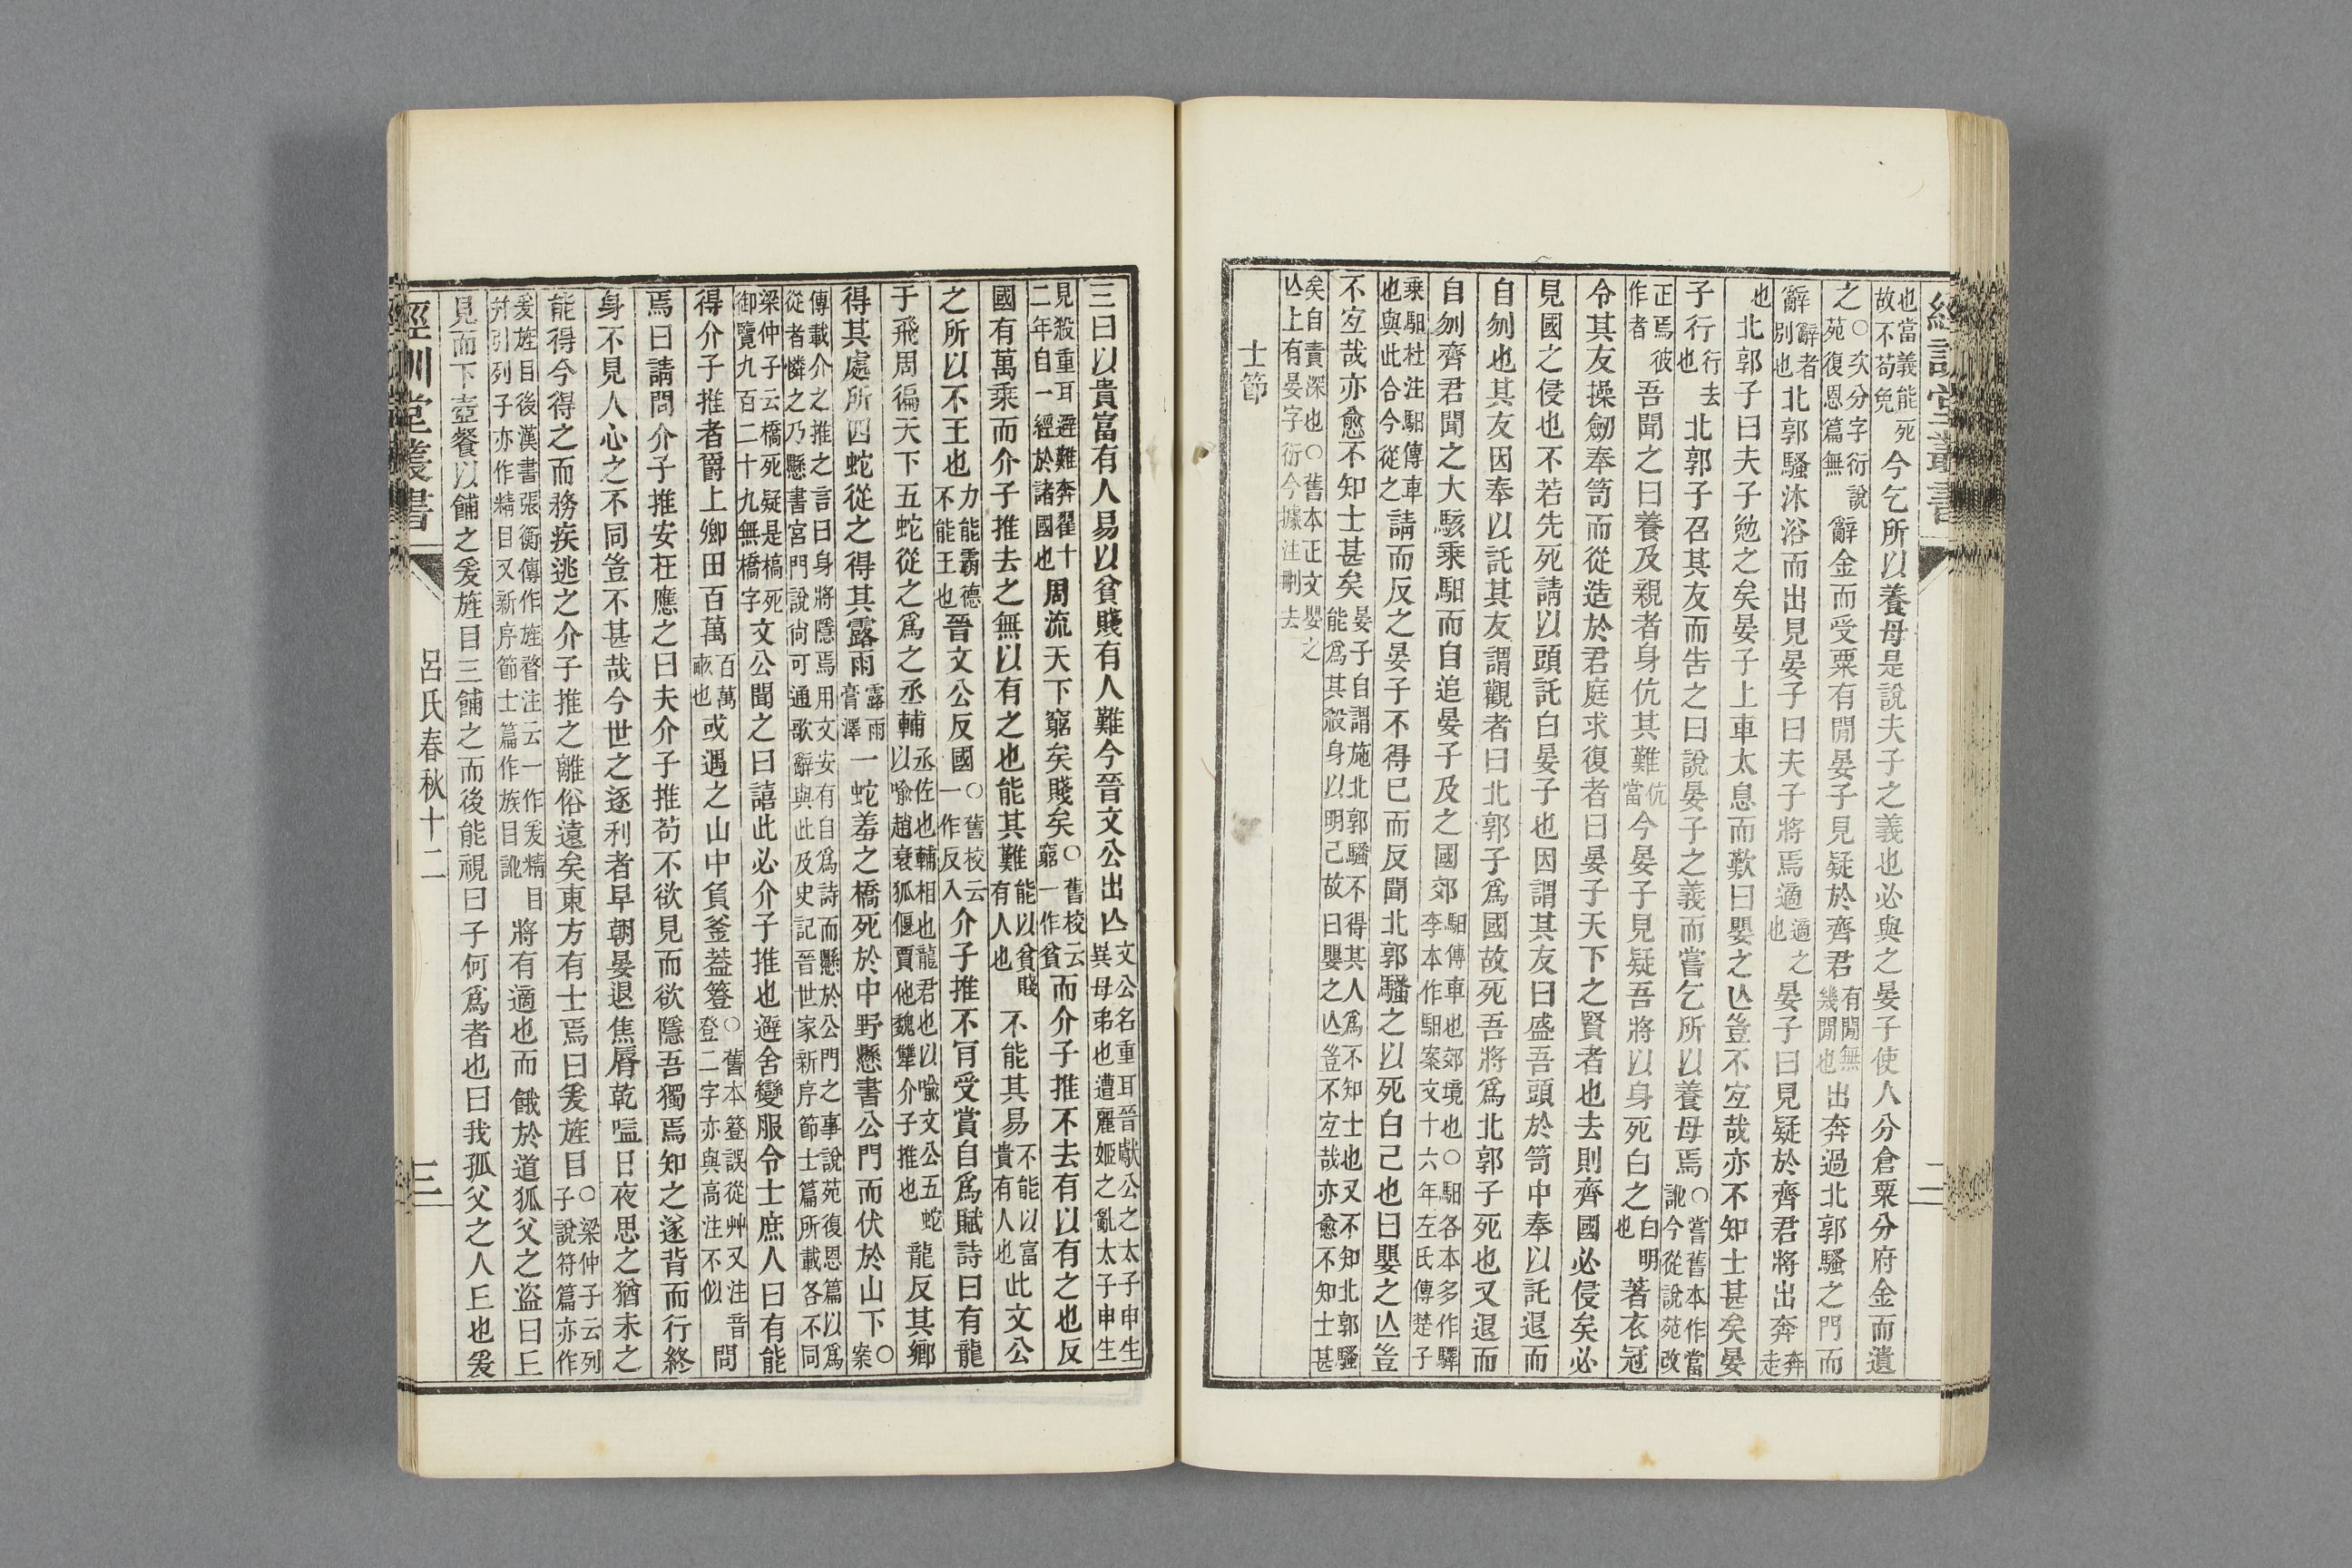 經訓堂叢書　二
也當義能死故不苟免今乞所以養母是說夫子之義也必與之晏子使人分倉粟分府金而遺
之○次分字衍說苑復恩篇無辭金而受粟有閒晏子見疑於齊君有閒無幾閒也出奔過北郭騷之門而
辭辭者別也北郭騷沐浴而出見晏子曰夫子將焉適適之也晏子曰見疑於齊君將出奔奔走
也北郭子曰夫子勉之矣晏子上車太息而歎曰嬰之亾豈不宐哉亦不知士甚矣晏
子行行去也北郭子召其友而吿之曰說晏子之義而嘗乞所以養母焉○嘗舊本作當訛今從說苑改
正焉彼作者吾聞之曰養及親者身伉其難伉當今晏子見疑吾將以身死白之白明也著衣冠
令其友操劒奉笥而從造於君庭求復者曰晏子天下之賢者也去則齊國必侵矣必
見國之侵也不若先死請以頭託白晏子也因謂其友曰盛吾頭於笥中奉以託退而
自刎也其友因奉以託其友謂觀者曰北郭子爲國故死吾將爲北郭子死也又退而
自刎齊君聞之大駭乘馹而自追晏子及之國郊馹傳車也郊境也○馹各本多作驛李本作馹案文十六年左氏傳楚子
乘馹杜注馹傳車也與此合今從之請而反之晏子不得巳而反聞北郭騷之以死白己也曰嬰之亾豈
不宐哉亦愈不知士甚矣晏子自謂施北郭騷不得其人爲不知士也又不知北郭騷能爲其殺身以明己故曰嬰之亾豈不宐哉亦愈不知士甚
矣自責深也○舊本正文嬰之亾上有晏字衍今據注刪去
士節
三曰以貴富有人易以貧賤有人難今晉文公出亾文公名重耳晉獻公之太子申生異母弟也遭麗姬之亂太子申生
見殺重耳遜難奔翟十二年自一經於諸國也周流天下窮矣賤矣○舊校云窮一作貧而介子推不去有以有之也反
國有萬乘而介子推去之無以有之也能其難能以貧賤有人也不能其易不能以富貴有人也此文公
之所以不王也力能霸德不能王也晉文公反國○舊校云一作反入介子推不肎受賞自爲賦詩曰有龍
于飛周徧天下五蛇從之爲之丞輔丞佐也輔相也龍君也以喻文公五蛇以喻趙衰狐偃賈他魏犨介子推也龍反其鄉
得其處所四蛇從之得其露雨露雨膏澤一蛇羞之橋死於中野懸書公門而伏於山下○案
傳載介之推之言曰身將隱焉用文安有自爲詩而懸於公門之事說苑復恩篇以爲從者憐之乃懸書宮門說尙可通歌辭與此及史記晉世家新序節士篇所載各不同
梁仲子云橋死疑是槁死御覽九百二十九無橋字文公聞之曰譆此必介子推也避舍變服令士庶人曰有能
得介子推者爵上卿田百萬百萬畞也或遇之山中負釜葢簦○舊本簦誤從艸又注音登二字亦與高注不似問
焉曰請問介子推安在應之曰夫介子推苟不欲見而欲隱吾獨焉知之遂背而行終
身不見人心之不同豈不甚哉今世之逐利者早朝晏退焦脣乾嗌日夜思之猶未之
能得今得之而務疾逃之介子推之離俗遠矣東方有士焉曰爰旌目○梁仲子云列子說符篇亦作
爰旌目後漢書張衡傳作旌瞀注云一作爰精目幷引列子亦作精目又新序節士篇作族目訛將有適也而餓於道狐父之盜曰丘
見而下壺餐以餔之爰旌目三餔之而後能視曰子何爲者也曰我狐父之人丘也爰
經訓堂叢書　呂氏春秋十二　三